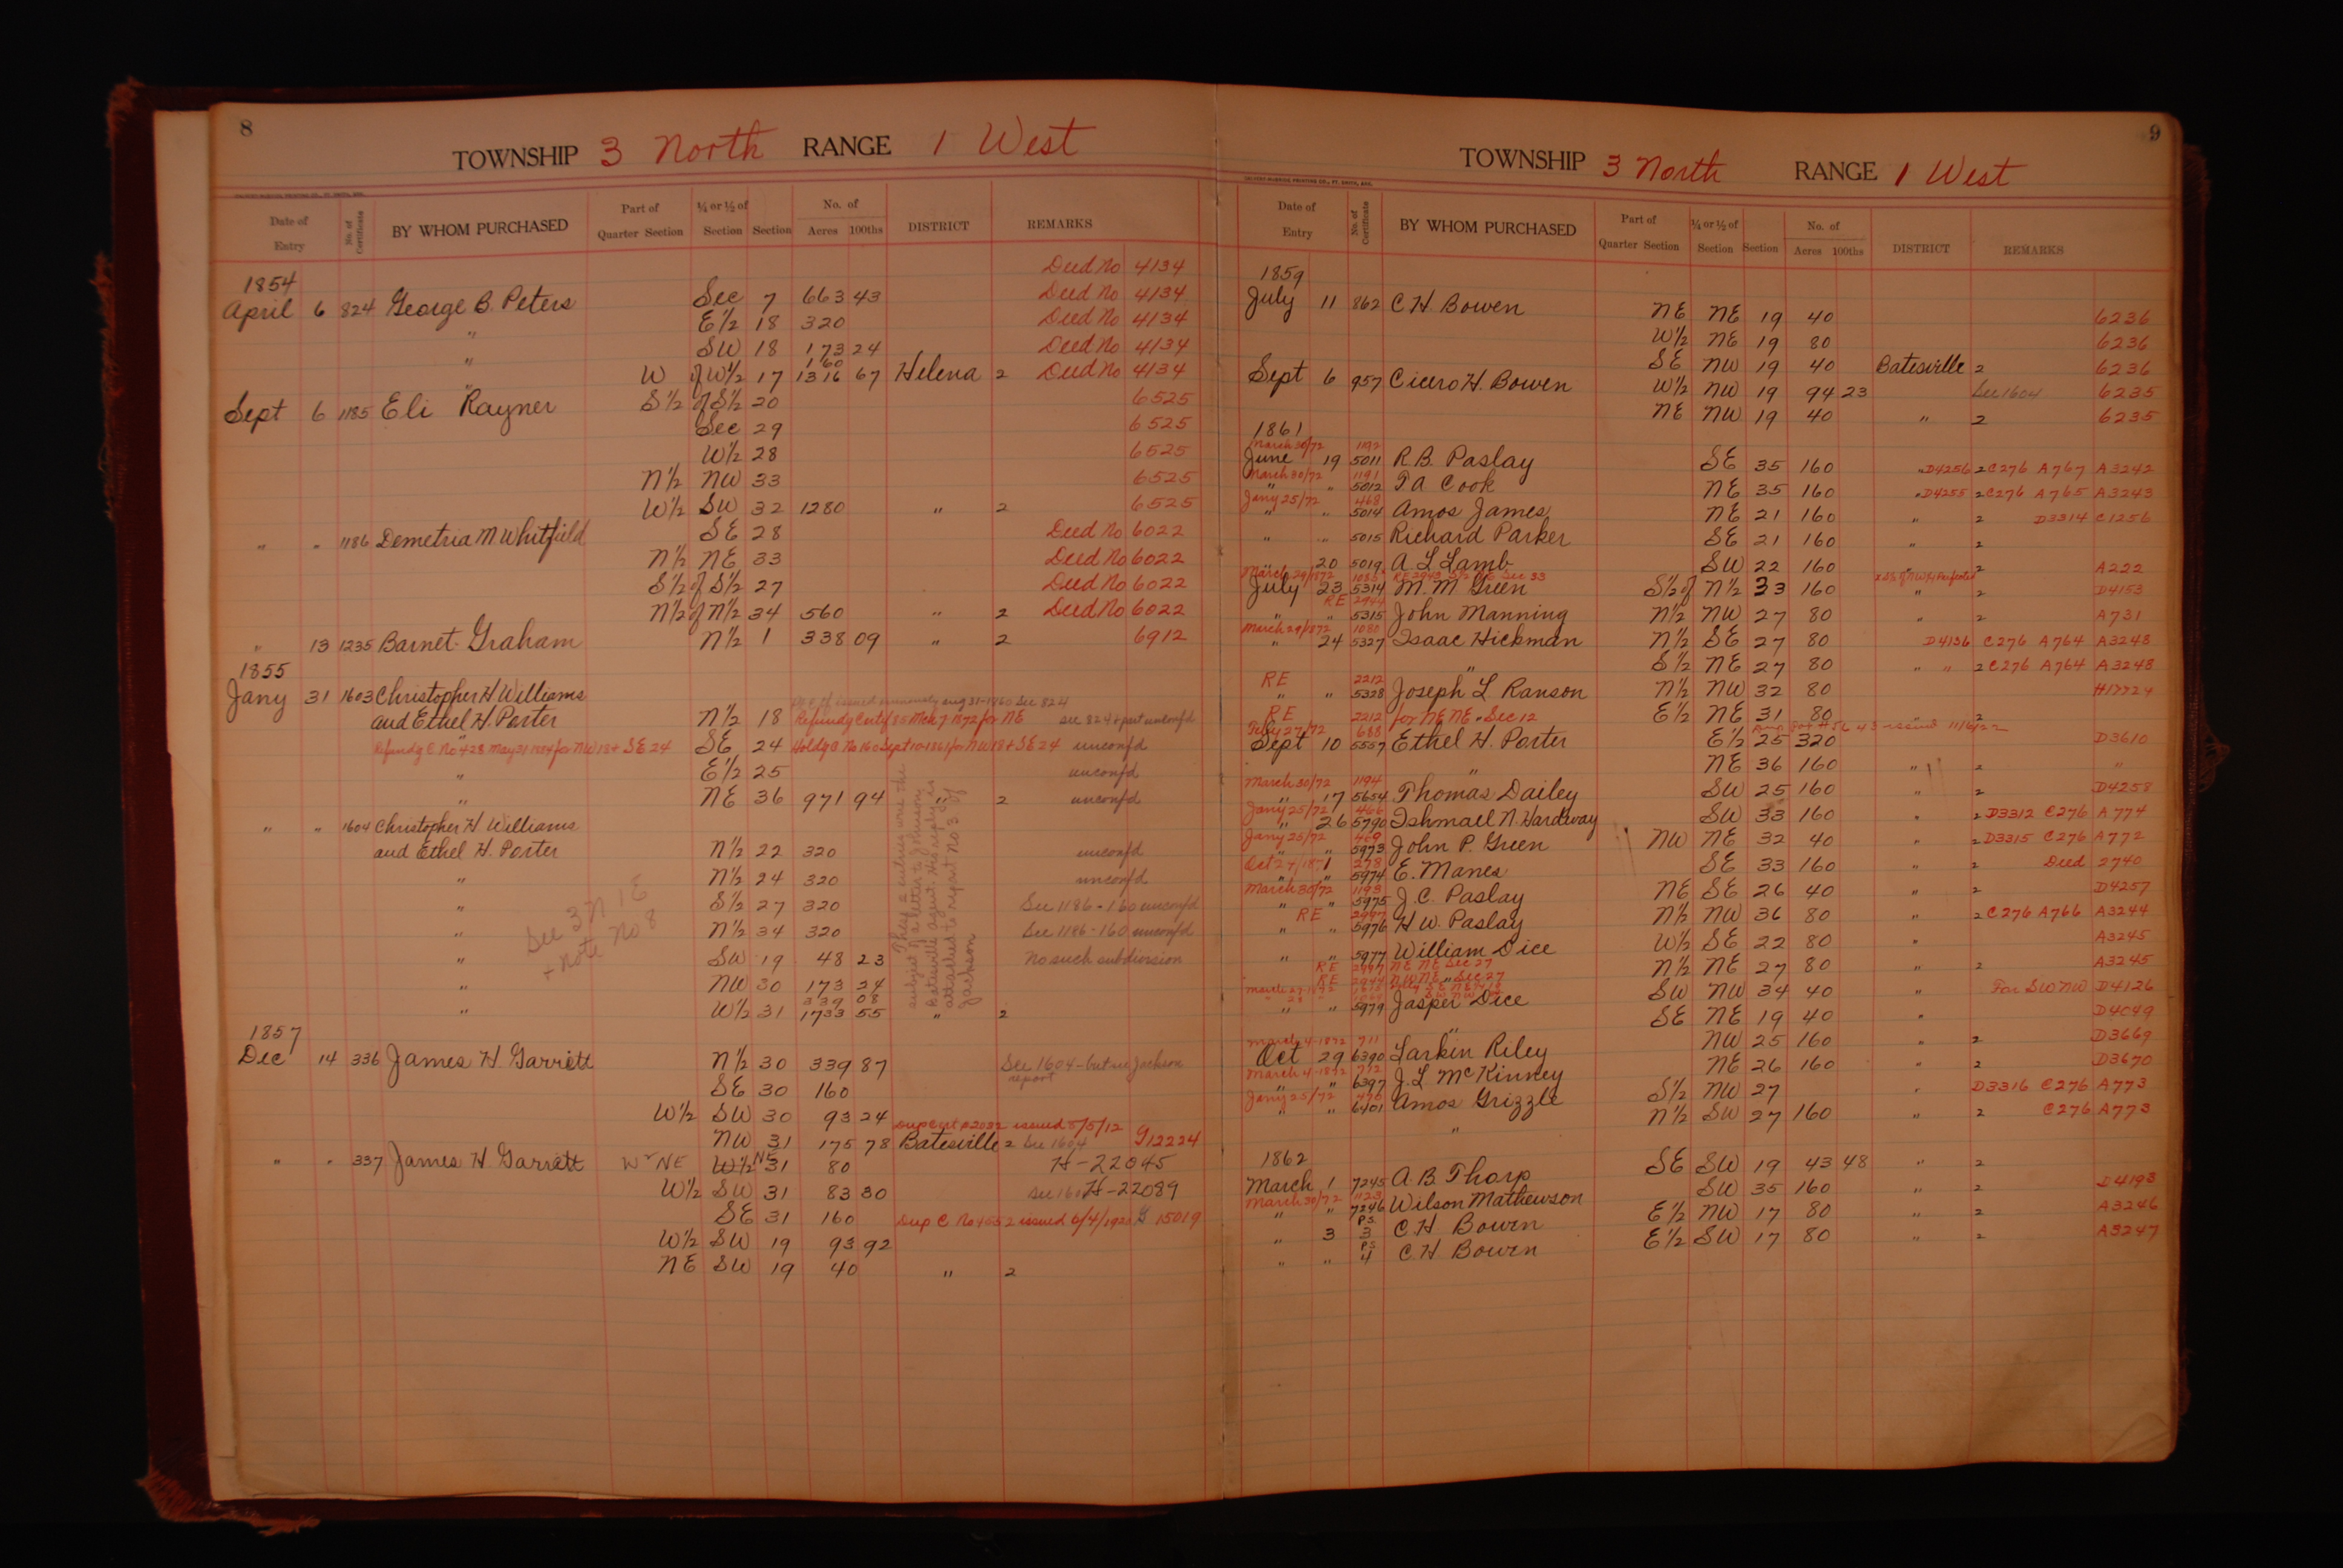 8
TOWNSHIP 3 North RANGE 1 West
Date of Entry No. of Certificate BY WHOM PURCHASED Part of Quarter Section ¼ or ½ of Section Section No. of Acres 100ths DISTRICT REMARKS
Deed No 4134
1854
April 6 824 George B. Peters Sec 7 663 43 Deed No 4134
" E½ 18 320 Deed No 4134
" SW 18 173 24 Deed No 4134
160
" W of W½ 17 1316 67 Helena 2 Deed No 4134
Sept 6 1185 Eli Rayner S½ of S½ 20 6525
Sec 29 6525
W½ 28 6525
N½ NW 33 6525
W½ SW 32 1280 " 2 6525
" " 1186 Demetria M Whitfield SE 28 Deed No 6022
N½ NE 33 Deed No 6022
S½ of S½ 27 Deed No 6022
N½ of N½ 34 560 " 2 Deed No 6022
" 13 1235 Barnet Graham N½ 1 338 09 " 2 6912
1855
Jany 31 1603 Christopher H Williams
and Ethel H. Porter N½ 18 Refundg Certf 85 Mch 7 1872 for NE see 824 + part unconf'd
Refundg C. No 428 May 31 1884 for NW 18 + SE 24 SE 24 Holdg C No 160 Sept 10 1861 for NW 18 + SE 24 unconf'd
" E½ 25 unconf'd
" NE 36 971 94 2 unconf'd
" " 1604 Christopher H Williams
and Ethel H. Porter N½ 22 320 unconf'd
" N½ 24 320 unconf'd
" S½ 27 320 See 1186 - 160 unconf'd
" N½ 34 320 See 1186 - 160 unconf'd
" SW 19 48 23 No such subdivision
" NW 30 173 24
339 08
" W½ 31 1733 55 " 2
See 3N 1E
+ note No 8
These 2 entries were the
subject of a letter to Johnson
Batesville agent. His reply is
attached to report No 3 of
Jackson
1857
Dec 14 336 James H. Garrett N½ 30 339 87 See 1604 - but see Jackson report
SE 30 160
W½ SW 30 93 24
Dup Cert #2032 issued 5/5/12
NW 31 175 78 Batesville 2 See 1604 G12224
" " 337 James H. Garrett W½ NE W½ NE 31 80 H-22045
W½ SW 31 83 30 see 1604 H-22089
SE 31 160 Dup C No 4052 issued 6/4/192 G 15019
W½ SW 19 93 92
NE SW 19 40 " 2
9
TOWNSHIP 3 North RANGE 1 West
Date of Entry No. of Certificate BY WHOM PURCHASED Part of Quarter Section ¼ or ½ of Section Section No. of Acres 100ths DISTRICT REMARKS
1859
July 11 862 C. H. Bowen NE NE 19 40 6236
W½ NE 19 80 6236
SE NW 19 40 Batesville 2 6236
Sept 6 957 Cicero H. Bowen W½ NW 19 94 23 See 1604 6235
NE NW 19 40 " 2 6235
1861
March 30/72 1192
June 19 5011 R. B. Paslay SE 35 160 " D4256 2 C276 A767 A3242
March 30/72 1191
" " 5012 T A Cook NE 35 160 " D4255 2 C276 A765 A3243
Jany 25/72 468
" " 5014 Amos James NE 21 160 " 2 D3314 C1256
" " 5015 Richard Parker SE 21 160 " 2
" 20 5019 A L Lamb SW 22 160 " 2 A222
March 29/1872 1085
July 23 5314 M. M Green S½ of N½ 33 160 " 2 D4153
RE 2944
" " 5315 John Manning N½ NW 27 80 " 2 A731
March 29/1872 1080
" 24 5327 Isaac Hickman N½ SE 27 80 D4136 C276 A764 A3248
" S½ NE 27 80 " " 2 C276 A764 A3248
RE 2212
" " 5328 Joseph L Ranson N½ NW 32 80 H17724
RE 2212 for NE NE " Sec 12 E½ NE 31 80 " 2
Feby 27/72 688
Sept 10 5557 Ethel H. Porter E½ 25 320 D3610
" NE 36 160 " 2 "
March 30/72 1194
" 17 5654 Thomas Dailey SW 25 160 " 2 D4258
Jany 25/72 466
" 26 5790 Ishmael N. Hardaway SW 33 160 " 2 D3312 C276 A774
Jany 25/72 469
" " 5973 John P. Green NW NE 32 40 " 2 D3315 C276 A772
Oct 27/1871 278
" " 5974 E. Manes SE 33 160 " 2 Deed 2740
March 30/72 1193
" " 5975 J. C. Paslay NE SE 26 40 " 2 D4257
RE 2997
" " 5976 H W. Paslay N½ NW 36 80 " 2 C276 A766 A3244
" " 5977 William Dice W½ SE 22 80 " A3245
RE 2997 NE NE Sec 27 N½ NE 27 80 " 2 A3245
RE 2944 NW NE " Sec 27
" " 5979 Jasper Dice SW NW 34 40 " For SW NW D4126
" SE NE 19 40 " D4049
March 4-1872 711
Oct 29 6390 Larkin Riley NW 25 160 " 2 D3669
March 4-1872 712
" " 6397 J. L. McKinney NE 26 160 " 2 D3670
Jany 25/72 470
" " 6401 Amos Grizzle S½ NW 27 " D3316 C276 A773
" N½ SW 27 160 " 2 C276 A773
1862
March 1 7245 A. B. Thorp SE SW 19 43 48 " 2
March 30/72 1123
" " 7246 Wilson Mathewson SW 35 160 " 2 D4193
" 3 PS 3 C. H. Bowen E½ NW 17 80 " 2 A3246
" " PS 4 C. H. Bowen E½ SW 17 80 " 2 A3247